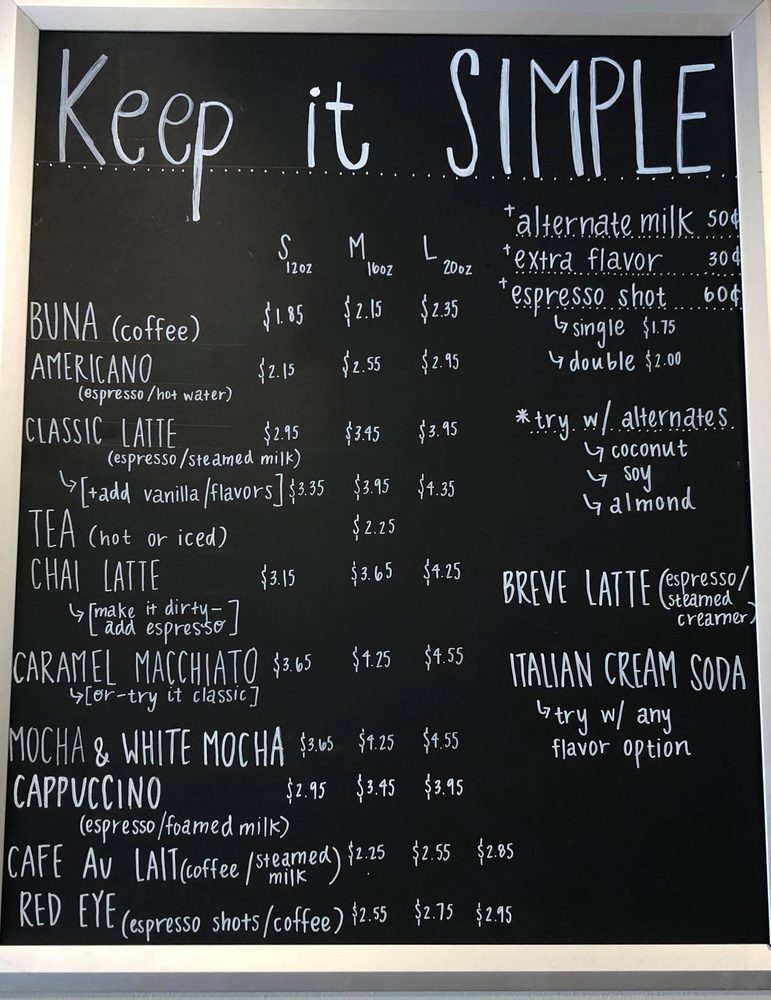 Keep it SIMPLE
S 12oz M 16oz L 20oz
BUNA (coffee) $1.85 $2.15 $2.35
AMERICANO $2.15 $2.55 $2.95
(espresso/hot water)
CLASSIC LATTE $2.95 $3.45 $3.95
(espresso/steamed milk)
↳[+add vanilla/flavors] $3.35 $3.95 $4.35
TEA (hot or iced) $2.25
CHAI LATTE $3.15 $3.65 $4.25
↳[make it dirty-
add espresso]
CARAMEL MACCHIATO $3.65 $4.25 $4.55
↳[or-try it classic]
MOCHA & WHITE MOCHA $3.65 $4.25 $4.55
CAPPUCCINO $2.95 $3.45 $3.95
(espresso/foamed milk)
CAFE AU LAIT (coffee/steamed
milk) $2.25 $2.55 $2.85
RED EYE (espresso shots/coffee) $2.55 $2.75 $2.95
+alternate milk 50¢
+extra flavor 30¢
+espresso shot 60¢
↳single $1.75
↳double $2.00
*try w/ alternates
↳coconut
↳soy
↳almond
BREVE LATTE (espresso/
steamed
creamer)
ITALIAN CREAM SODA
↳try w/ any
flavor option